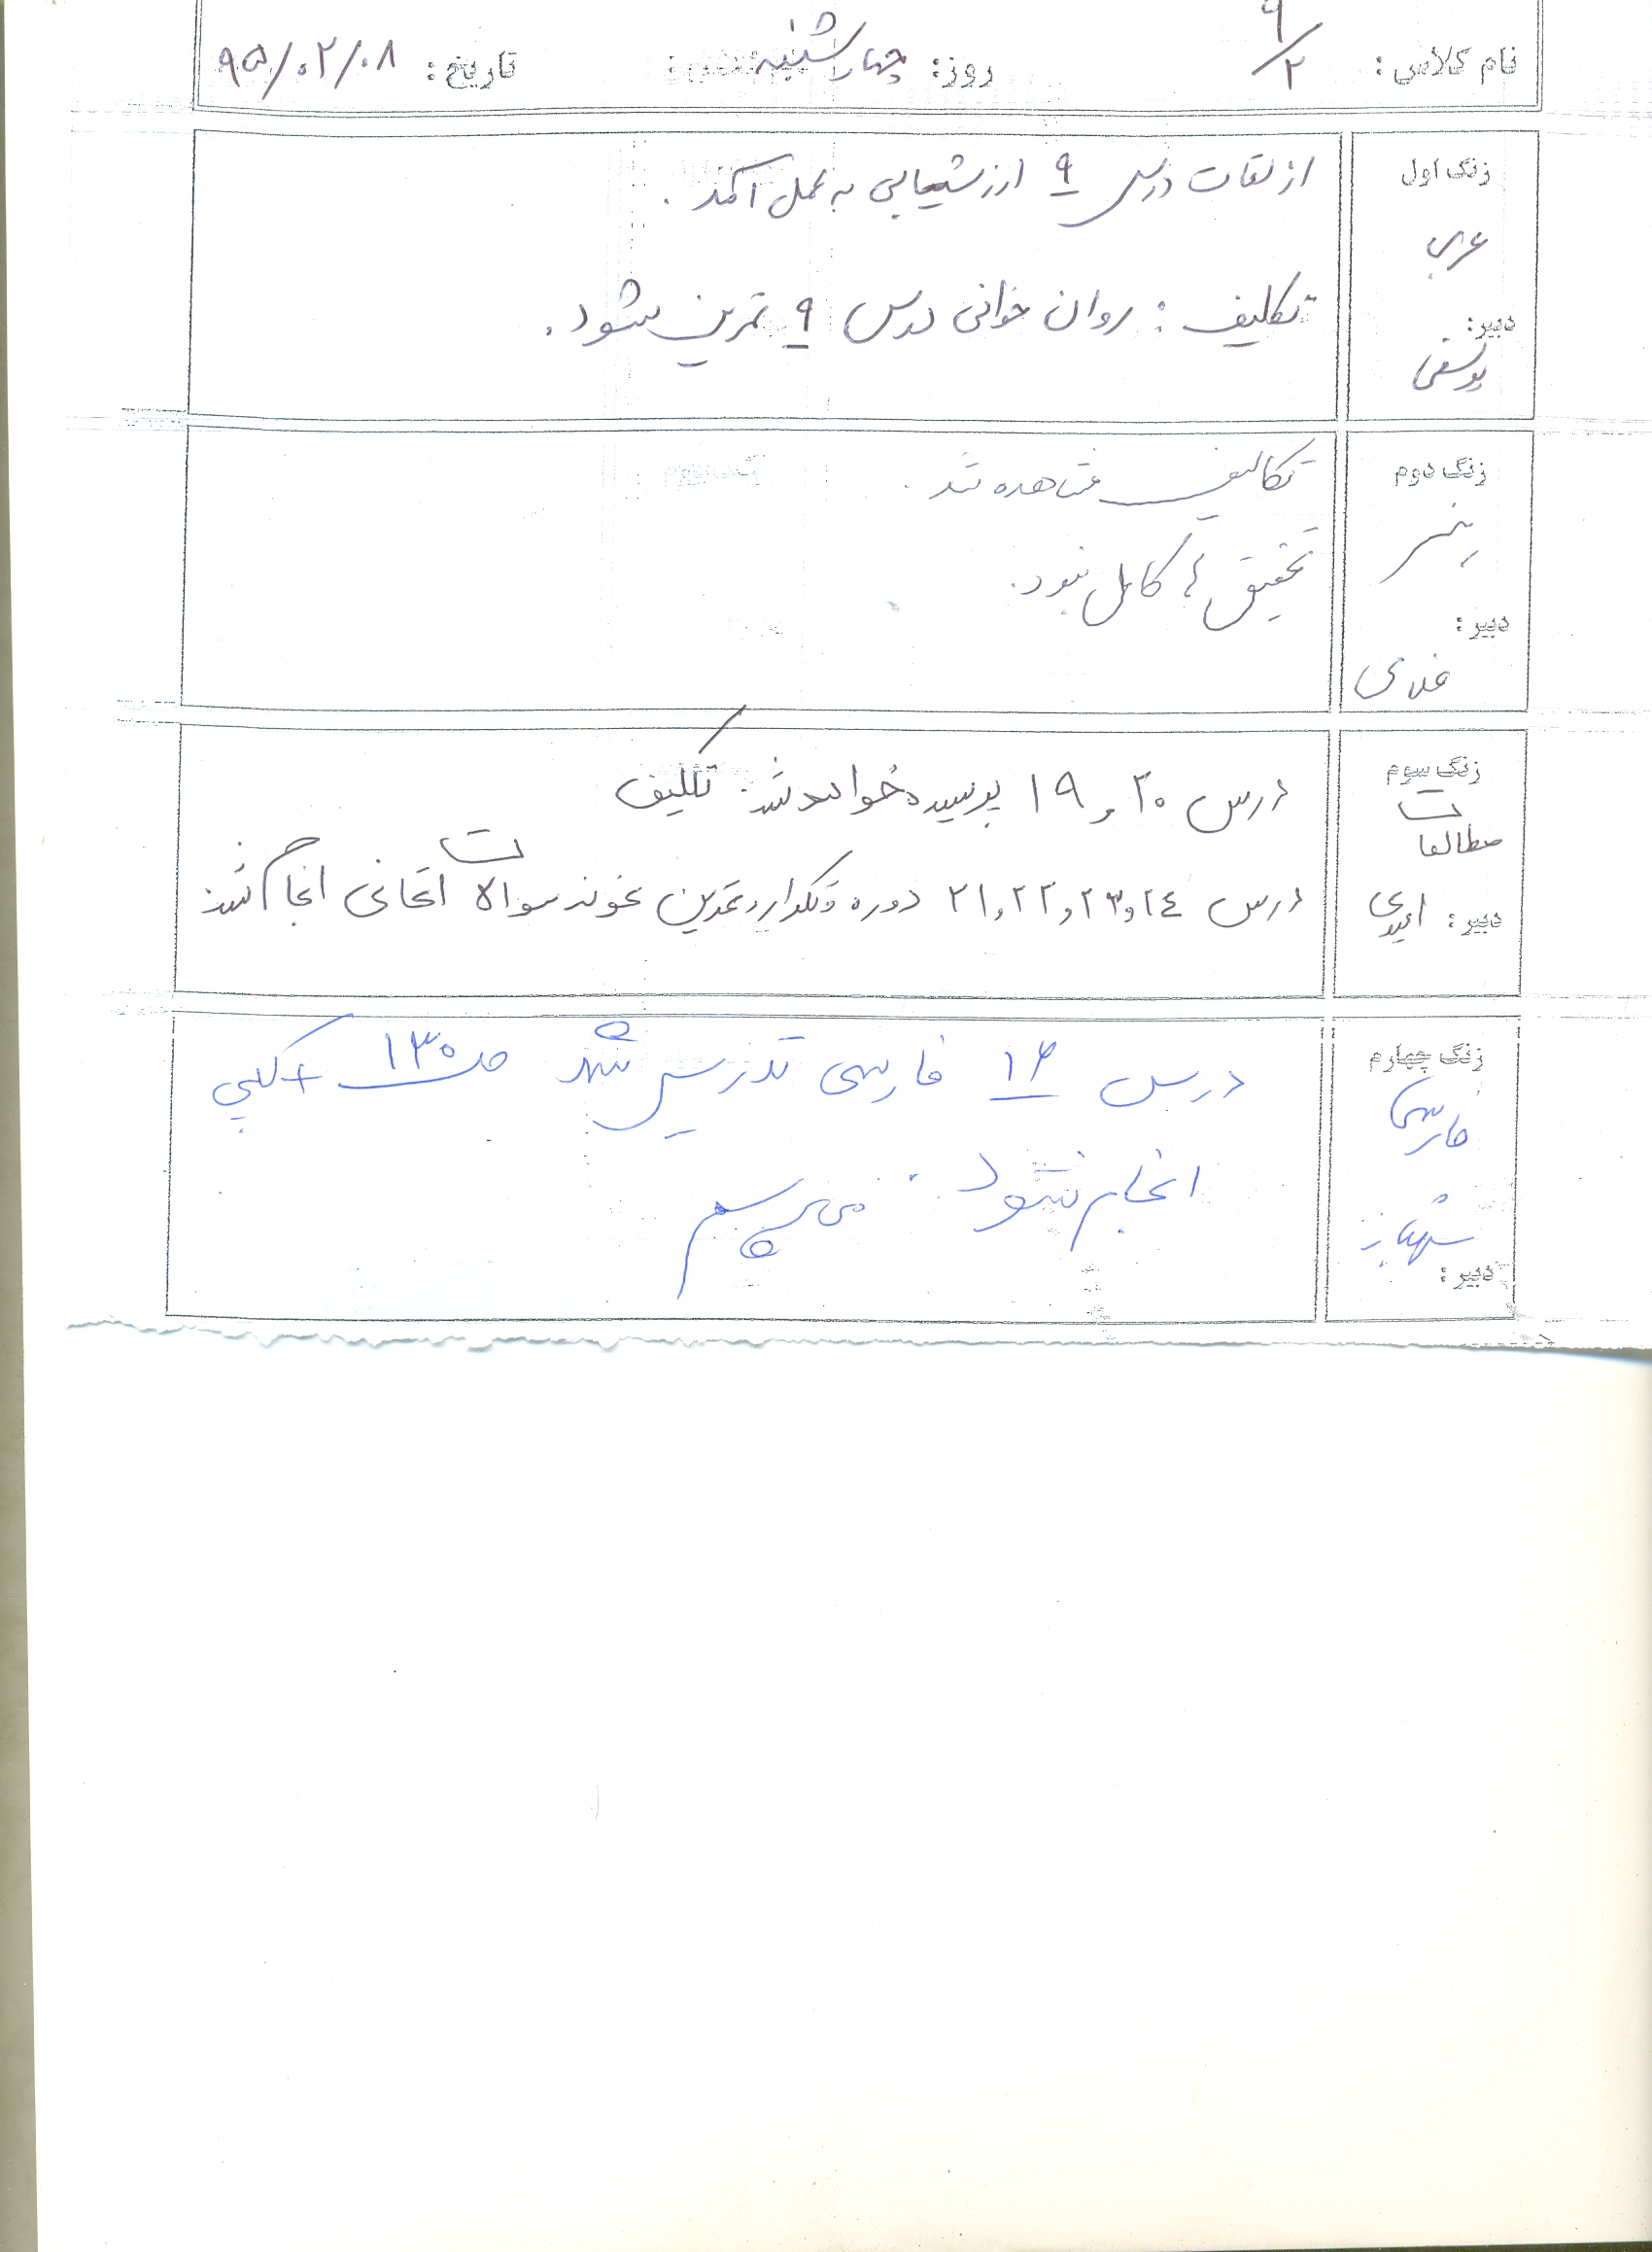 نام کلاس: ۹/۲ روز: چهارشنبه تاریخ: ۹۵/۰۲/۰۸
زنگ اول
عربی
دبیر:
یوسفی
از لغات درس ۹ ارزشیابی به عمل آمد.
تکلیف: روان خوانی درس ۹ تمرین شود.
زنگ دوم
هنر
دبیر:
تکالیف مشاهده شد.
تحقیق ها کامل نبود.
زنگ سوم
مطالعات
دبیر: امیدی
درس ۲۰ و ۱۹ پرسیده خواهد شد. تکلیف
درس ۲۴ و ۲۳ و ۲۲ و ۲۱ دوره و تکرار و تمرین شوند سوالات امتحانی انجام شد
زنگ چهارم
فارسی
شهباز
دبیر:
درس ۱۶ فارسی تدریس شد ص ۱۳۰ + کپی
انجام شود. می پرسم